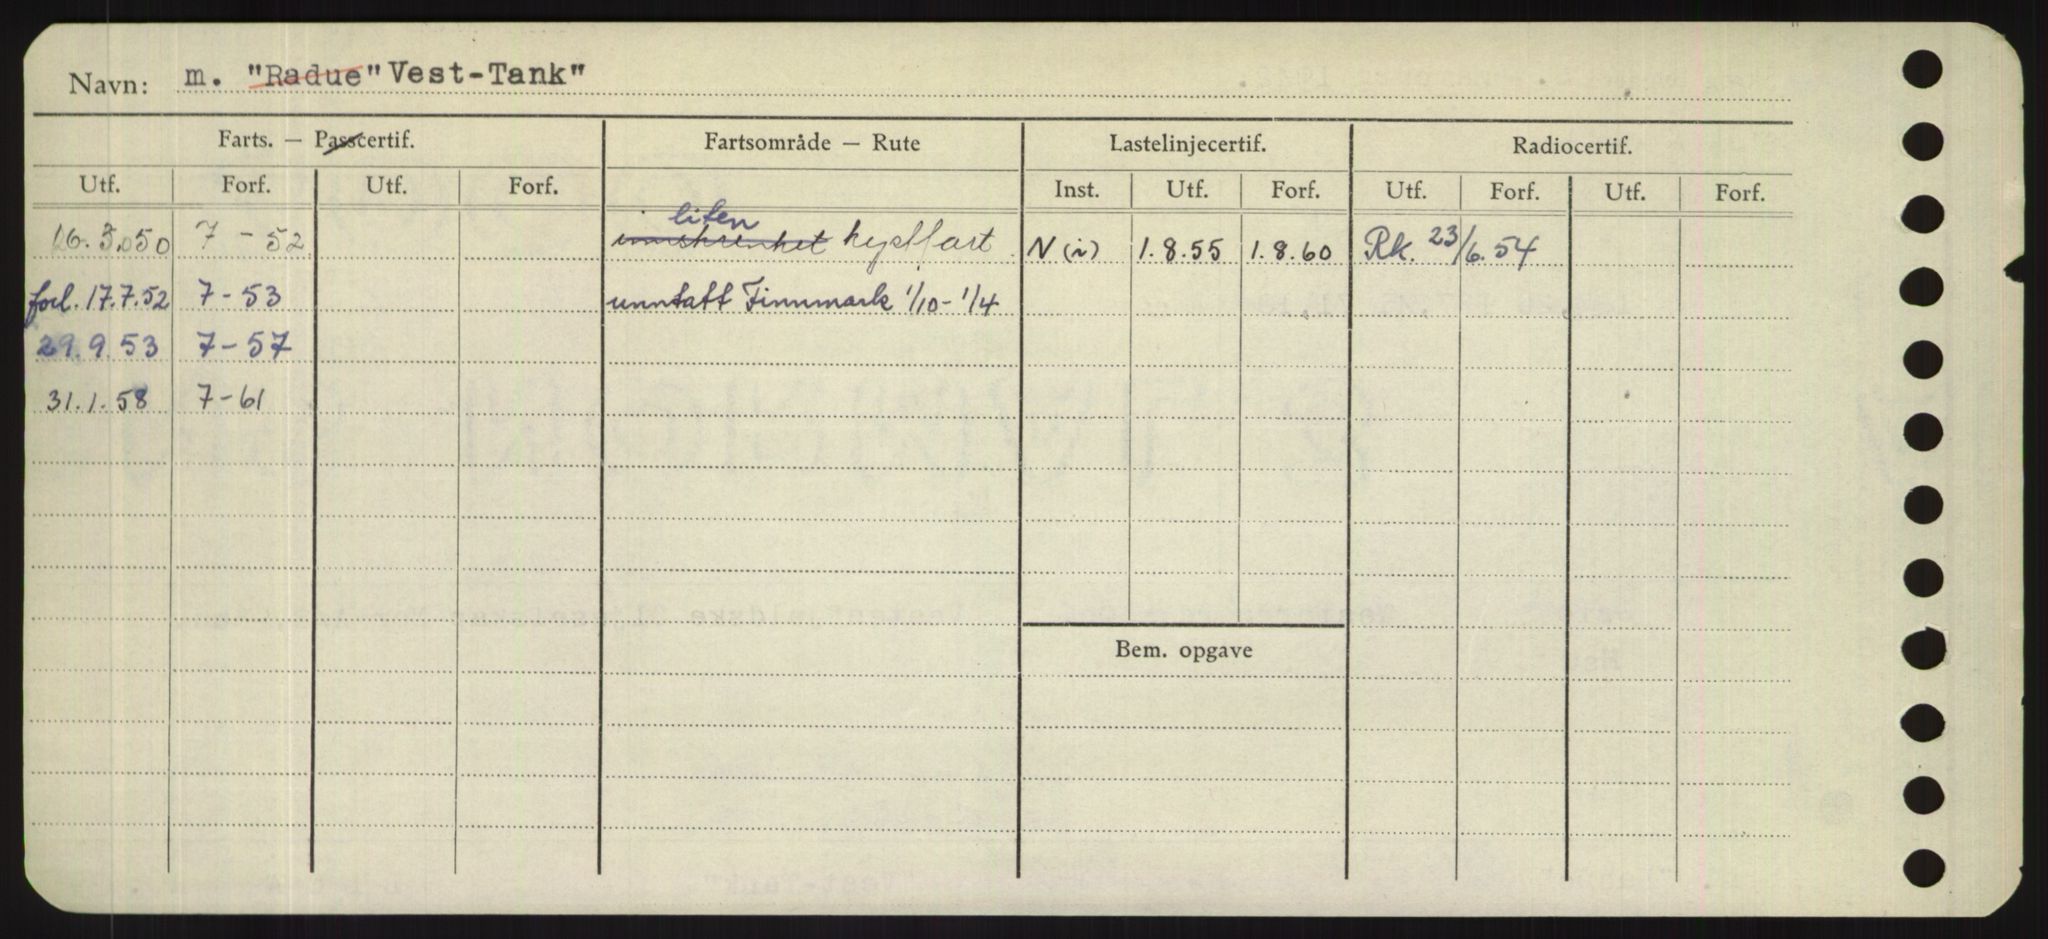 Navn: m. "Radue" Vest-Tank"
Farts. — Passcertif. Fartsområde — Rute Lastelinjecertif. Radiocertif.
Utf. Forf. Utf. Forf. Inst. Utf. Forf. Utf. Forf. Utf. Forf.
liten
16.3.50 7 - 52 innskrenket kystfart N (i) 1.8.55 1.8.60 Rk. 23/6.54
forl. 17.7.52 7-53 unntatt Finnmark 1/10-1/4
29.9.53 7-57
31.1.58 7-61
Bem. opgave